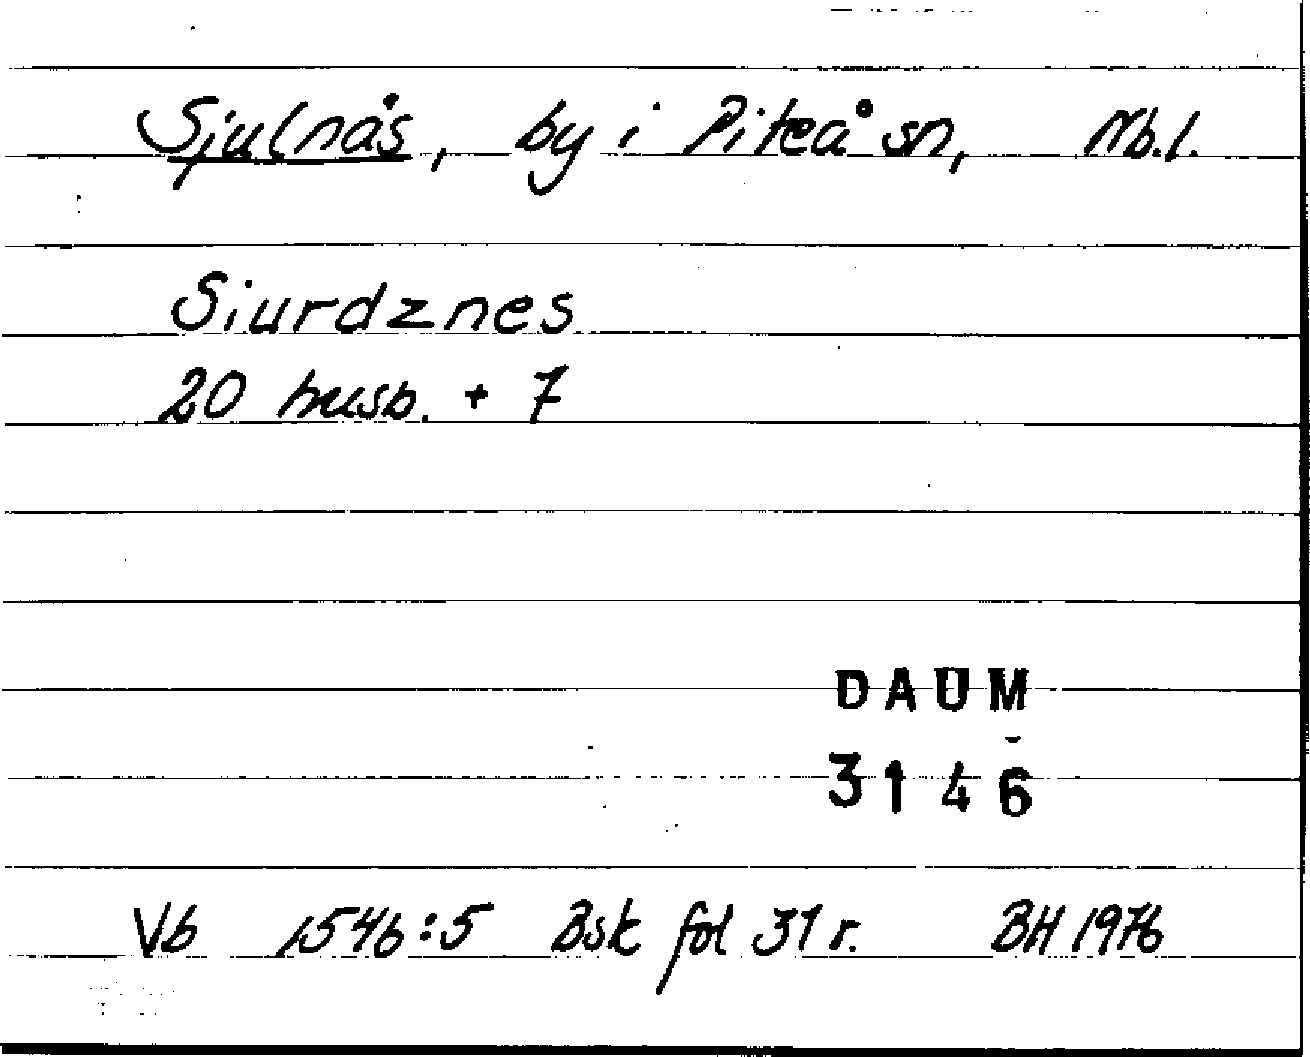 Sjulnäs, by i Piteå sn, Nb.l.
Siurdznes
20 husb. + 7
DAUM
3146
Vb 1546:5 Bsk fol 31 r. BH 1976